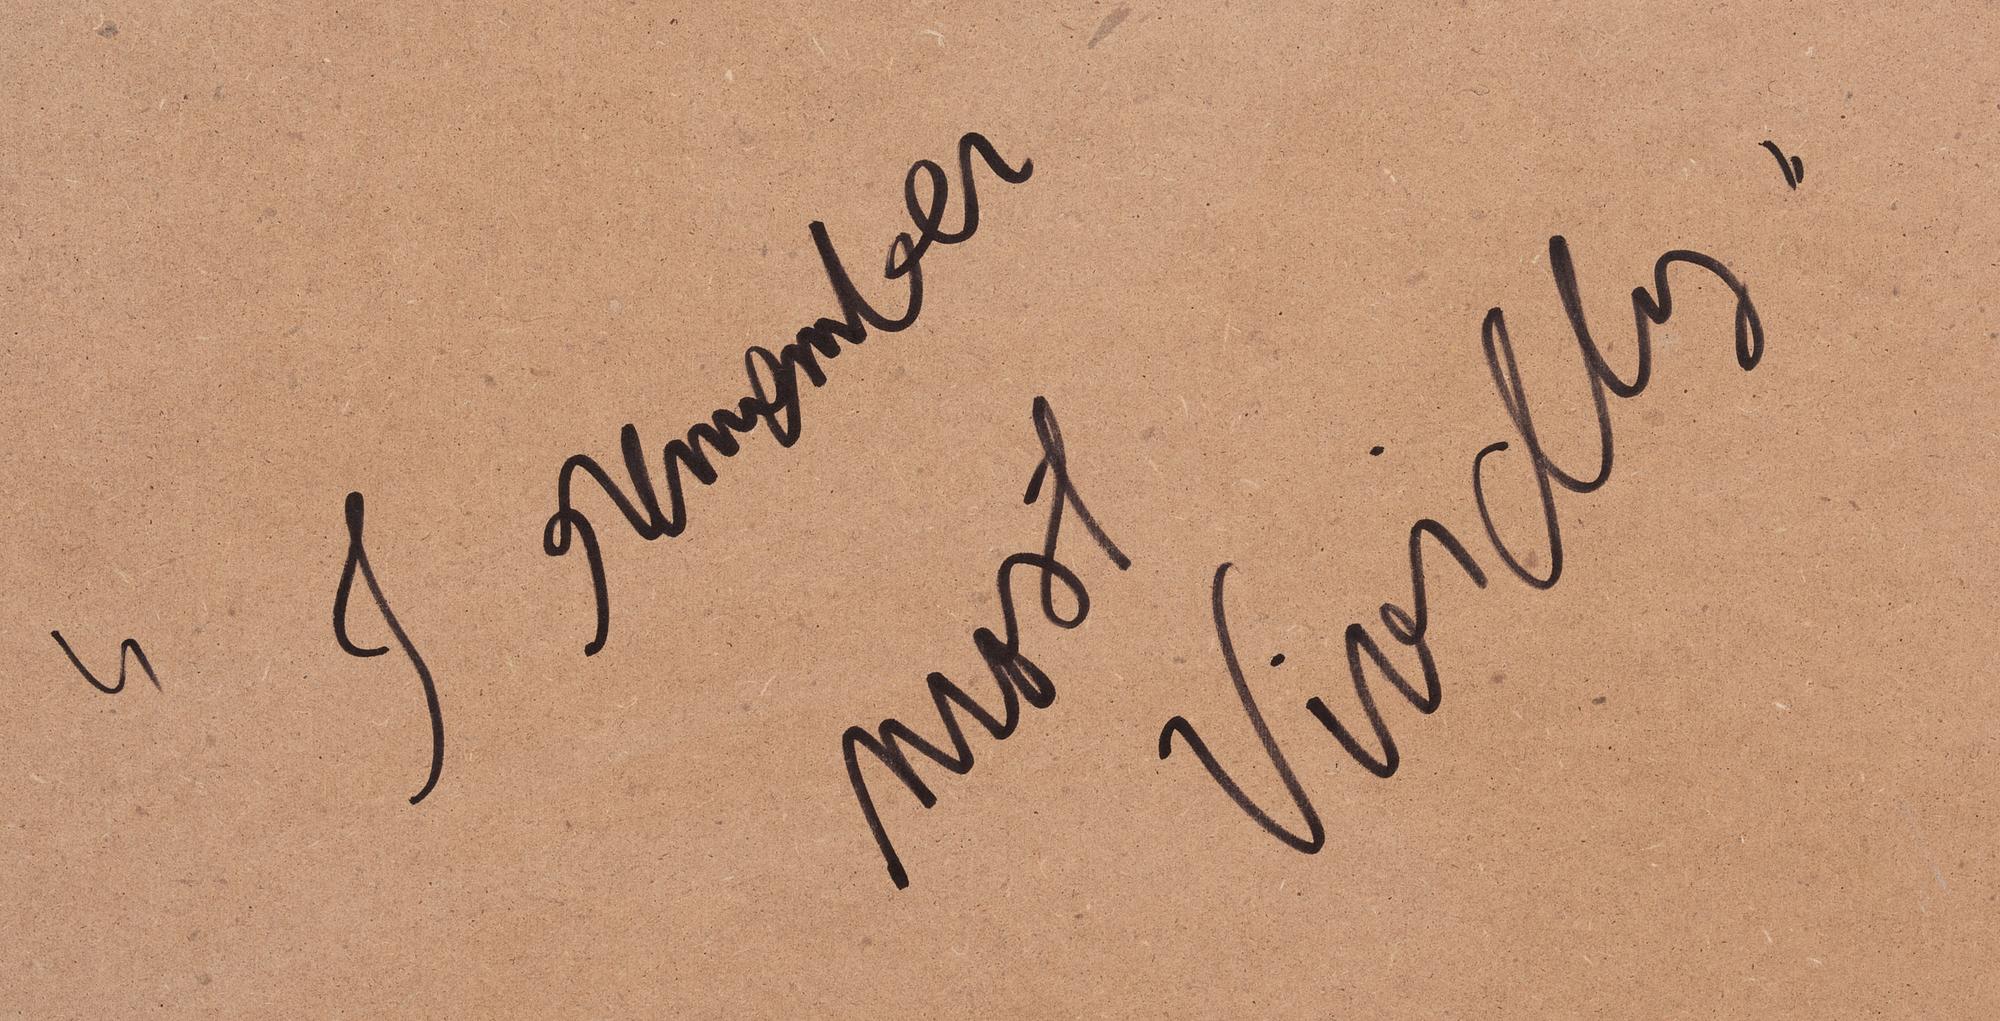 "I Remember
most
Vividly"